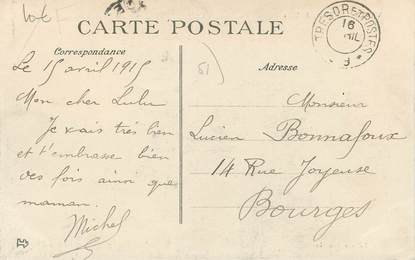 10€
CARTE POSTALE
TRESOR ET POSTES
16
8
Correspondance
Adresse
51
Le 15 avril 1915
Mon cher Lulu
Je vais très bien
et t'embrasse bien
des fois ainsi que
maman.
Michel
Monsieur
Lucien Bonnafoux
14 Rue Joyeuse
Bourges